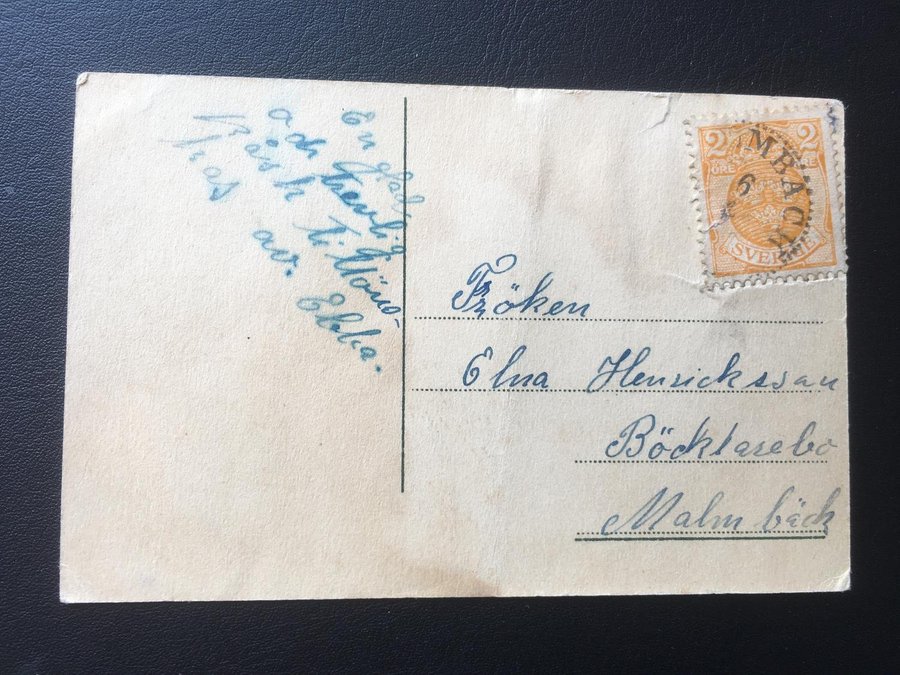 En glad
och trevlig
Påsk tillöns-
kas av.
Ebba.
2 2
ÖRE
SVERIGE
MBÄCK
6
Fröken
Elna Henricksson
Böcklarebo
Malmbäck